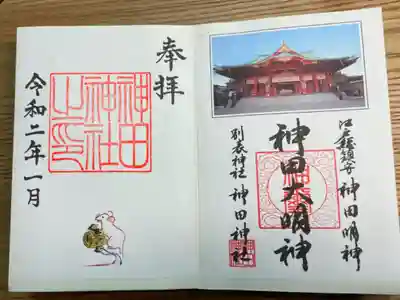 江戸総鎮守 神田明神
神田大明神
別表神社 神田神社
奉拝
神田
神社
之印
令和二年一月